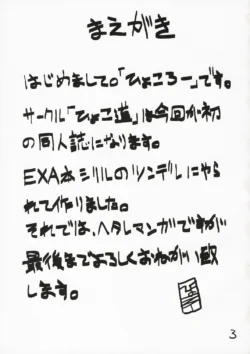 まえがき
はじめまして。「ひよころー」です。
サークル「ひよこ道」は今回が初
の同人誌になります。
EXA本シリルのツンデレにやら
れて作りました。
それでは、ヘタレマンガですが
最後までよろしくおねがい致
します。
3